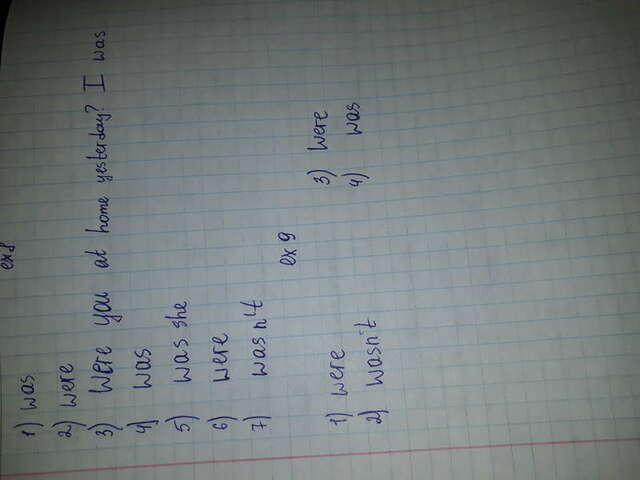 ex 8
1) was
2) were
3) Were you at home yesterday? I was
4) was
5) was she
6) were
7) wasn't
ex 9
1) were
2) wasn't
3) were
4) was